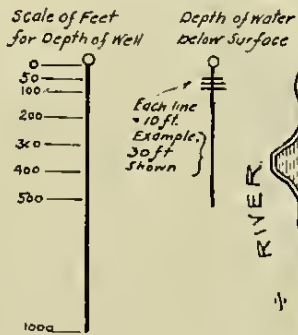 Scale of Feet
for Depth of Well
0
50
100
200
300
400
500
1000
Depth of Water
below Surface
Each line
= 10 ft.
Example,
30 ft
Shown
RIVER